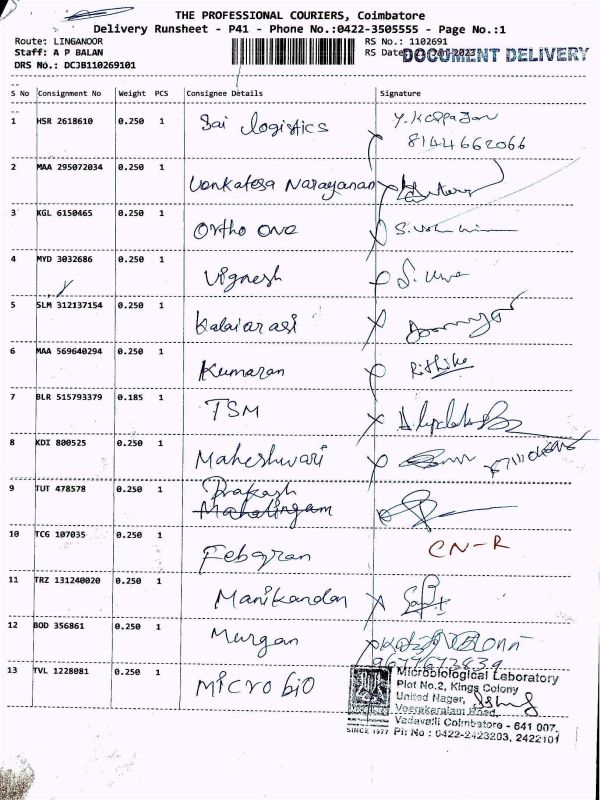 THE PROFESSIONAL COURIERS, Coimbatore
Delivery Runsheet - P41 - Phone No.:0422-3505555 - Page No.:1
Route: LINGANOOR
RS No.: 1102691
Staff: A P BALAN
RS Date
DOCUMENT DELIVERY
DRS No.: DCJB110269101
S No Consignment No Weight PCS Consignee Details Signature
1 HSR 2618610 0.250 1 Sai logistics
8144662066
2 MAA 295072034 0.250 1 Venkatesa Narayanan
3 KGL 6150465 0.250 1 Ortho one
4 MYD 3032686 0.250 1 Vignesh
5 SLM 312137154 0.250 1 Kalaiarasi
6 MAA 569640294 0.250 1 Kumaran Rithika
7 BLR 515793379 0.185 1 TSM
8 KDI 800525 0.250 1 Maheshwari
9 TUT 478578 0.250 1 Prakash
Mahalingam
10 TCG 107035 0.250 1 CN-R
11 TRZ 131240020 0.250 1 Manikandan
12 BOD 356861 0.250 1 Murgan
9677673839
13 TVL 1228081 0.250 1 Micro bio
Microbiological Laboratory
Plot No.2, Kings Colony
United Nagar,
Veerakeralam Road,
Vadavalli Coimbatore - 641 007.
SINCE 1977 Ph No : 0422-2423203, 2422101